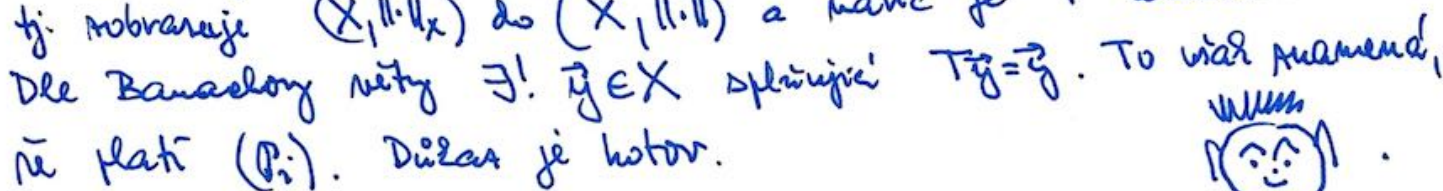 tj. zobrazuje (X, ||·||_X) do (X, ||·||) a navíc je
Dle Banachovy věty ∃! \vec{y} ∈ X splňující T\vec{y} = \vec{y}. To však znamená,
že platí (P_i). Důkaz je hotov.